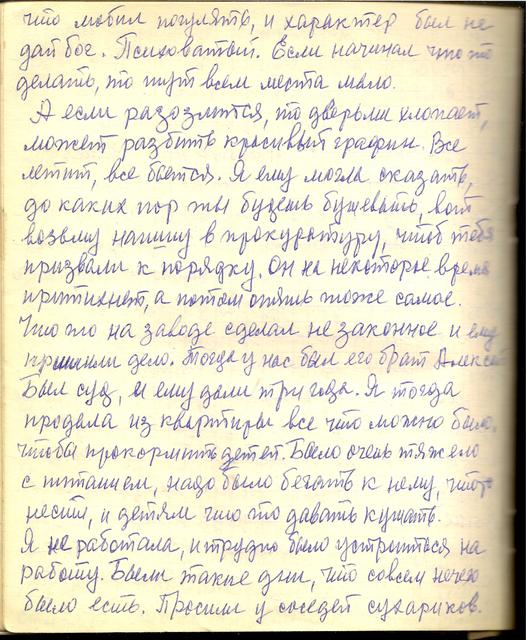 что любил погулять, и характер был не
дай бог. Психоватый. Если начинал что то
делать, то тут всем места мало.
А если разозлится, то дверьми хлопает,
может разбить красивый графин. Все
летит, все бьется. Я ему могла сказать,
до каких пор ты будешь бушевать, вот
возьму напишу в прокуратуру, чтоб тебя
призвали к порядку. Он на некоторое время
притихнет, а потом опять тоже самое.
Что то на заводе сделал не законное и ему
пришили дело. Тогда у нас был его брат Алексей
Был суд, и ему дали три года. Я тогда
продала из квартиры все что можно было,
чтобы прокормить детей. Было очень тяжело
с питанием, надо было бегать к нему, что то
нести, и детям что то давать кушать.
Я не работала, и трудно было устроиться на
работу. Были такие дни, что совсем нечего
было есть. Просили у соседей сухариков.